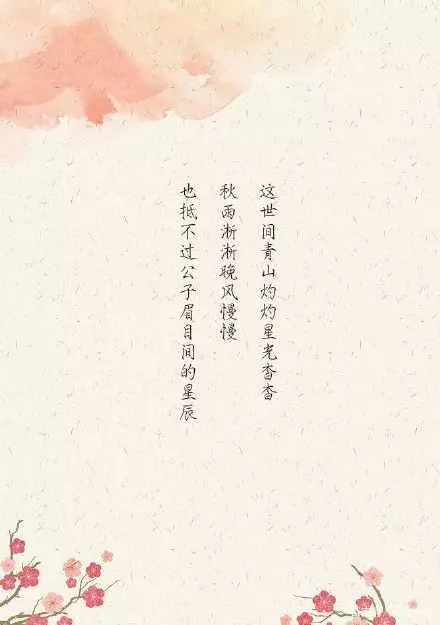 这世间青山灼灼星光杳杳
秋雨淅淅晚风慢慢
也抵不过公子眉目间的星辰